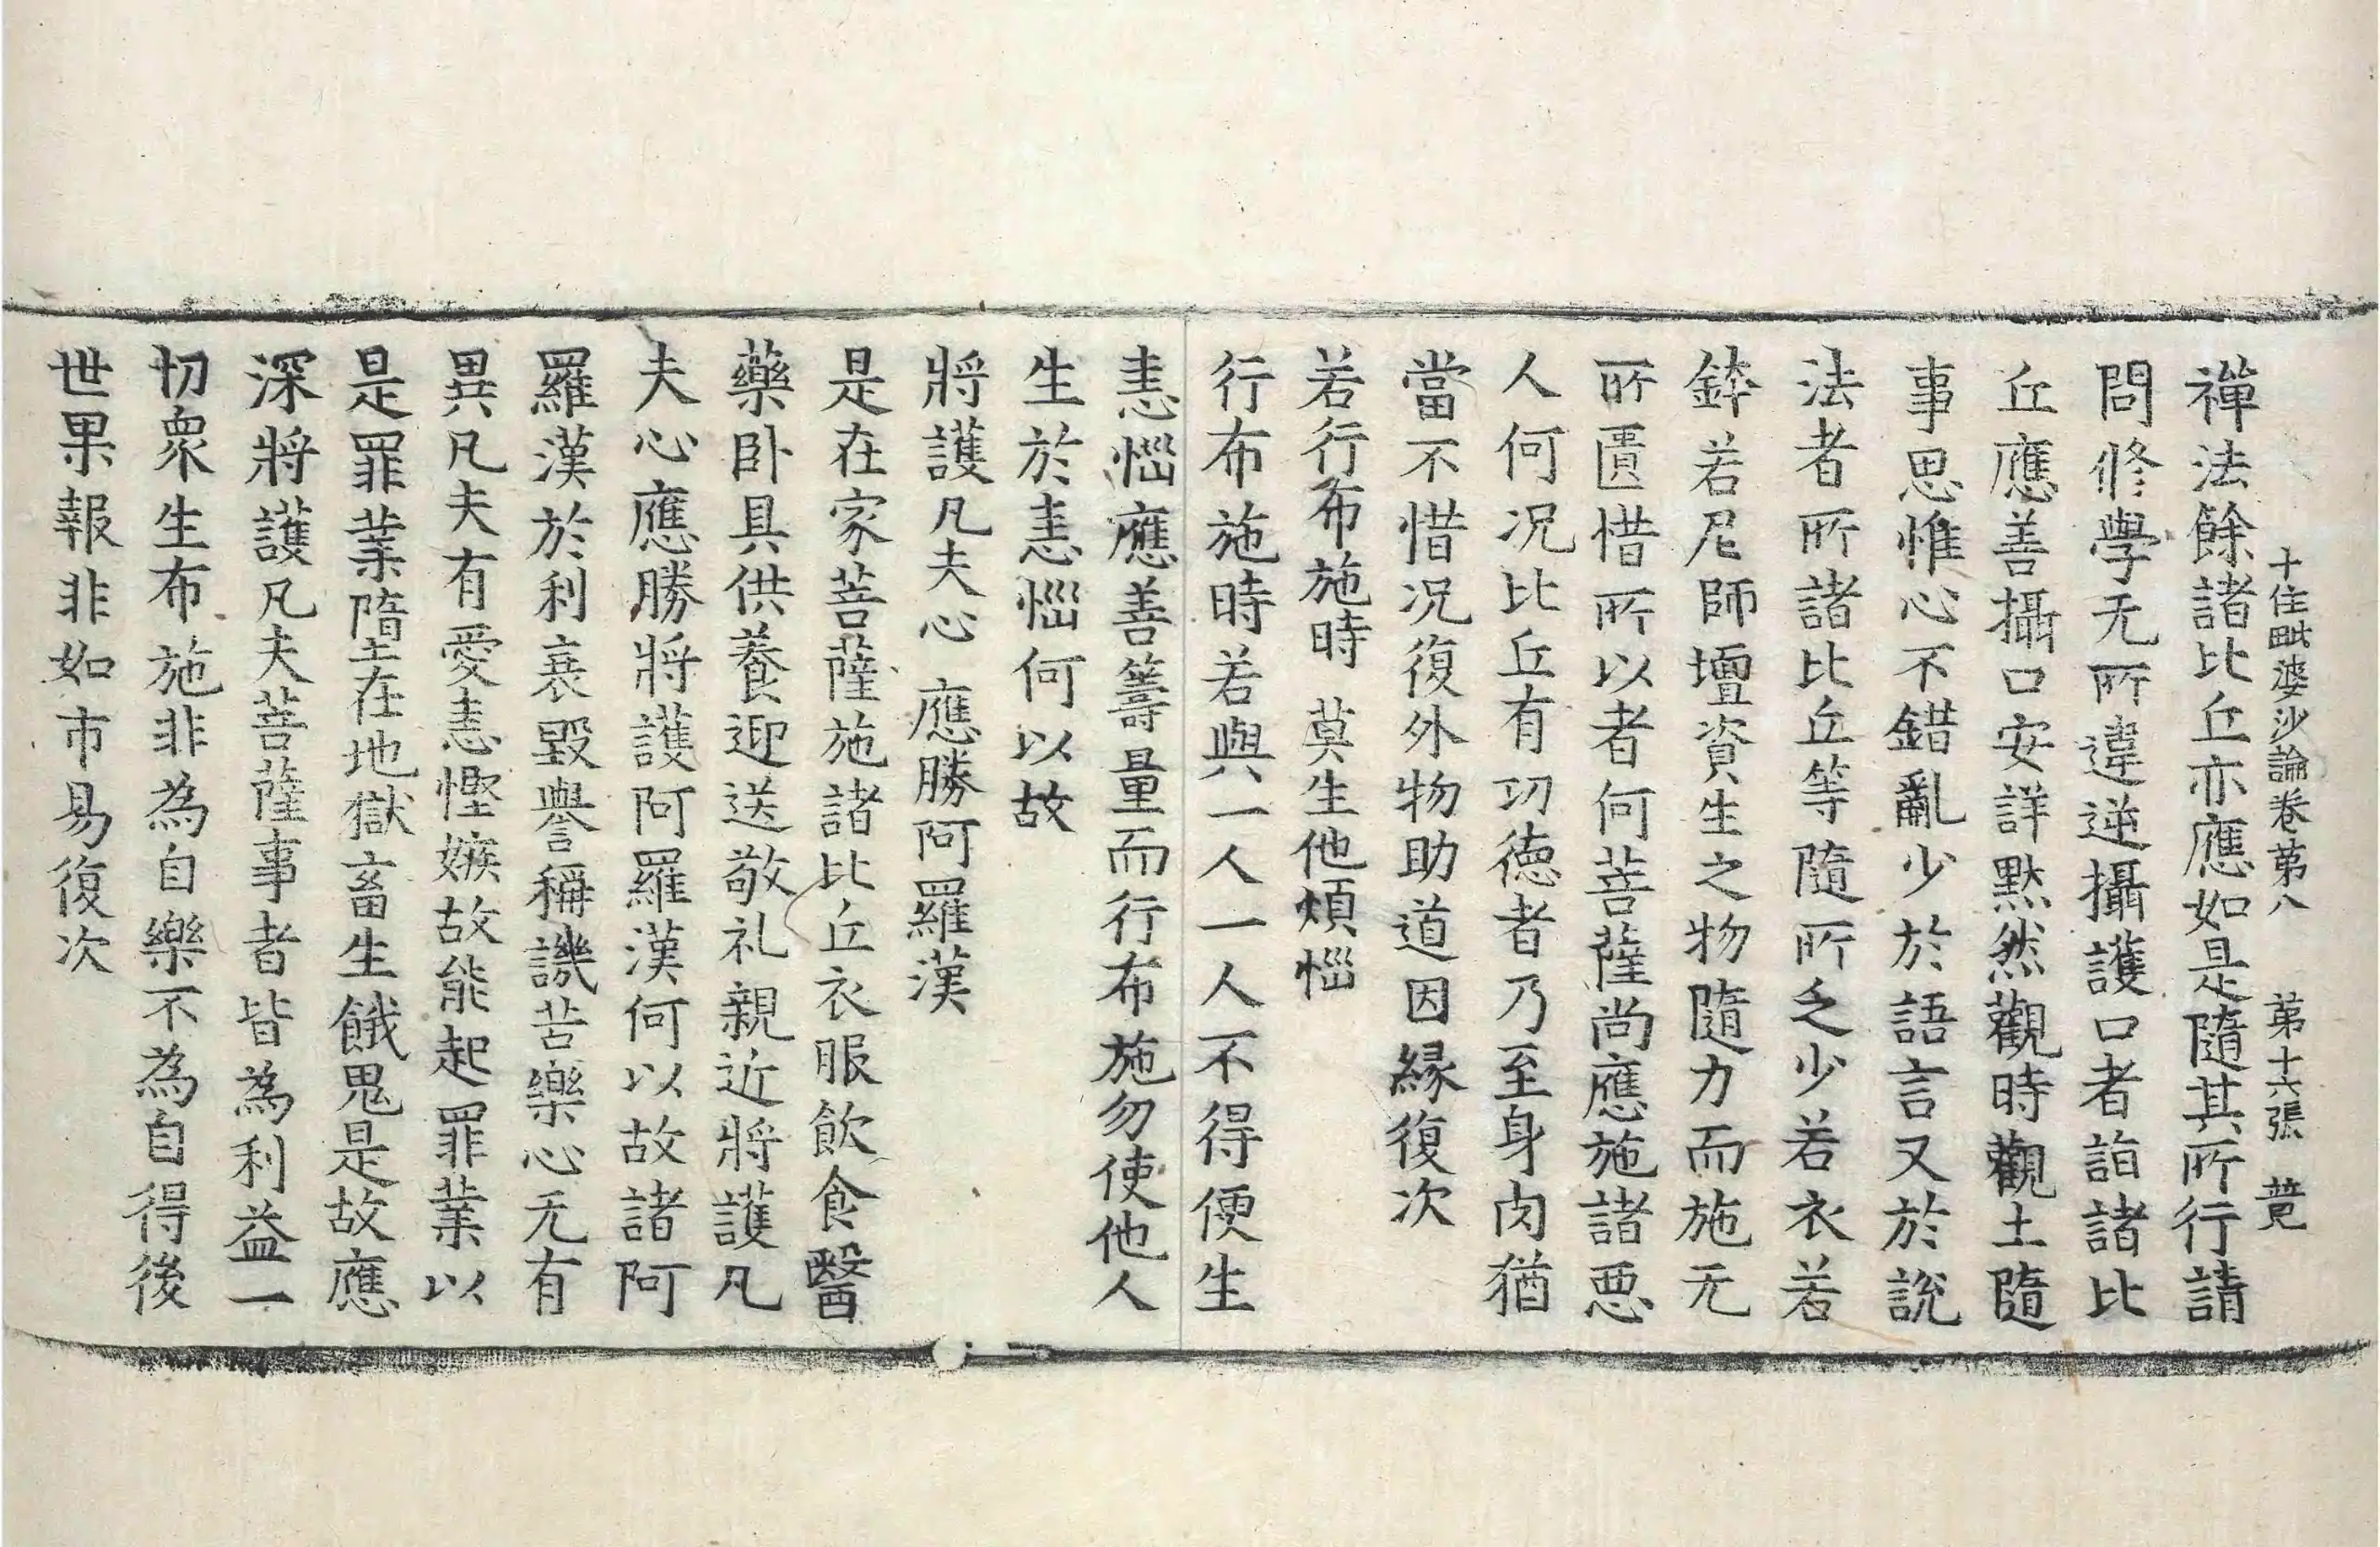 十住毗婆沙論卷第八　第十六張　萈
禪法餘諸比丘亦應如是隨其所行請
問修學无所違逆攝護口者詣諸比
丘應善攝口安詳黙然觀時觀土隨
事思惟心不錯亂少於語言又於說
法者所諸比丘等隨所乏少若衣若
鉢若尼師壇資生之物隨力而施无
所匱惜所以者何菩薩尚應施諸惡
人何況比丘有功德者乃至身肉猶
當不惜況復外物助道因緣復次
若行布施時　莫生他煩惱
行布施時若與一人一人不得便生
恚惱應善籌量而行布施勿使他人
生於恚惱何以故
將護凡夫心　應勝阿羅漢
是在家菩薩施諸比丘衣服飲食醫
藥卧具供養迎送敬礼親近將護凡
夫心應勝將護阿羅漢何以故諸阿
羅漢於利衰毀譽稱譏苦樂心无有
異凡夫有愛恚慳嫉故能起罪業以
是罪業墮在地獄畜生餓鬼是故應
深將護凡夫菩薩事者皆為利益一
切眾生布施非為自樂不為自得後
世果報非如市易復次